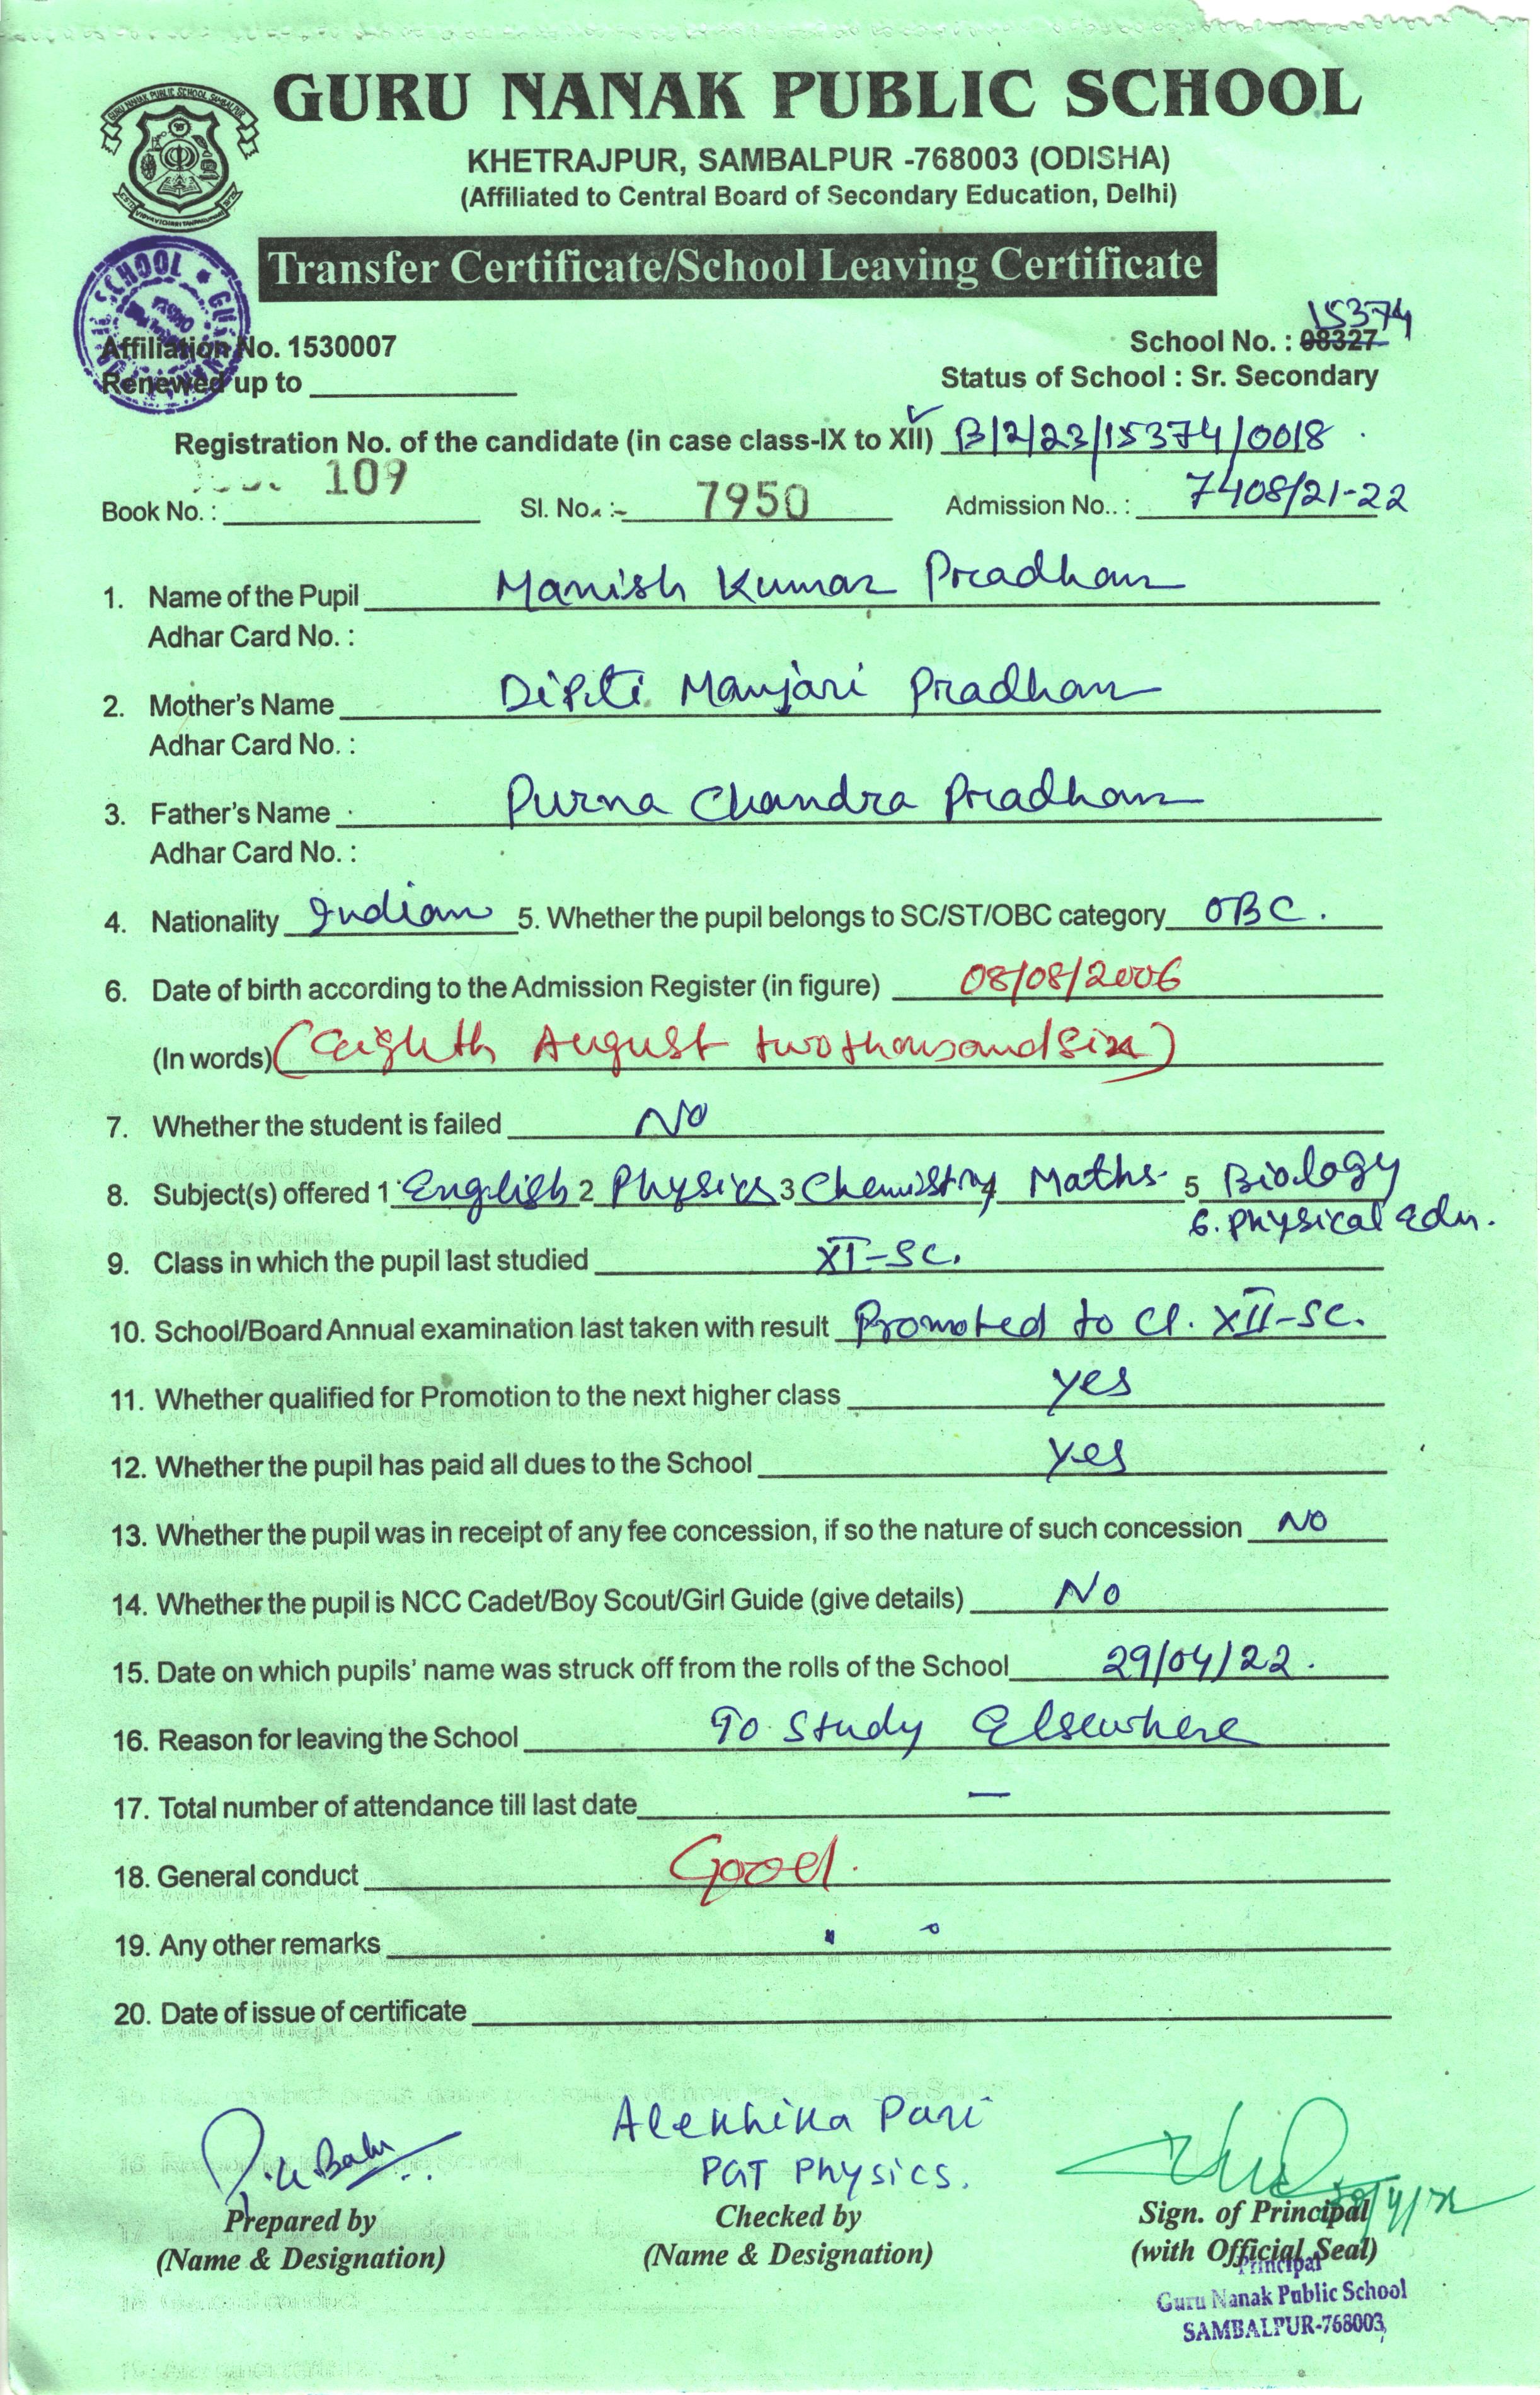 GURU NANAK PUBLIC SCHOOL SAMBALPUR
GURU NANAK PUBLIC SCHOOL
KHETRAJPUR, SAMBALPUR -768003 (ODISHA)
(Affiliated to Central Board of Secondary Education, Delhi)
Transfer Certificate/School Leaving Certificate
SCHOOL
15374
Affiliation No. 1530007 School No. : 08327
Renewed up to Status of School : Sr. Secondary
Registration No. of the candidate (in case class-IX to XII) B/2/23/15374/0018
Book No. : 109 Sl. No. :- 7950 Admission No.. : 7408/21-22
1. Name of the Pupil Manish Kumar Pradhan
Adhar Card No. :
2. Mother's Name Dipti Manjari Pradhan
Adhar Card No. :
3. Father's Name Purna Chandra Pradhan
Adhar Card No. :
4. Nationality Indian 5. Whether the pupil belongs to SC/ST/OBC category OBC.
6. Date of birth according to the Admission Register (in figure) 08/08/2006
(In words) (Eighth August two thousand six)
7. Whether the student is failed NO
8. Subject(s) offered 1 English 2 Physics 3 Chemistry 4 Maths 5 Biology
6. Physical Edn.
9. Class in which the pupil last studied XI-SC.
10. School/Board Annual examination last taken with result Promoted to Cl. XII-SC.
11. Whether qualified for Promotion to the next higher class Yes
12. Whether the pupil has paid all dues to the School Yes
13. Whether the pupil was in receipt of any fee concession, if so the nature of such concession NO
14. Whether the pupil is NCC Cadet/Boy Scout/Girl Guide (give details) NO
15. Date on which pupils' name was struck off from the rolls of the School 29/04/22.
16. Reason for leaving the School To Study Elsewhere
17. Total number of attendance till last date —
18. General conduct Good.
19. Any other remarks
20. Date of issue of certificate
Alekhika Pari
PGT Physics.
Prepared by Checked by Sign. of Principal
(Name & Designation) (Name & Designation) (with Official Seal)
Principal
Guru Nanak Public School
SAMBALPUR-768003